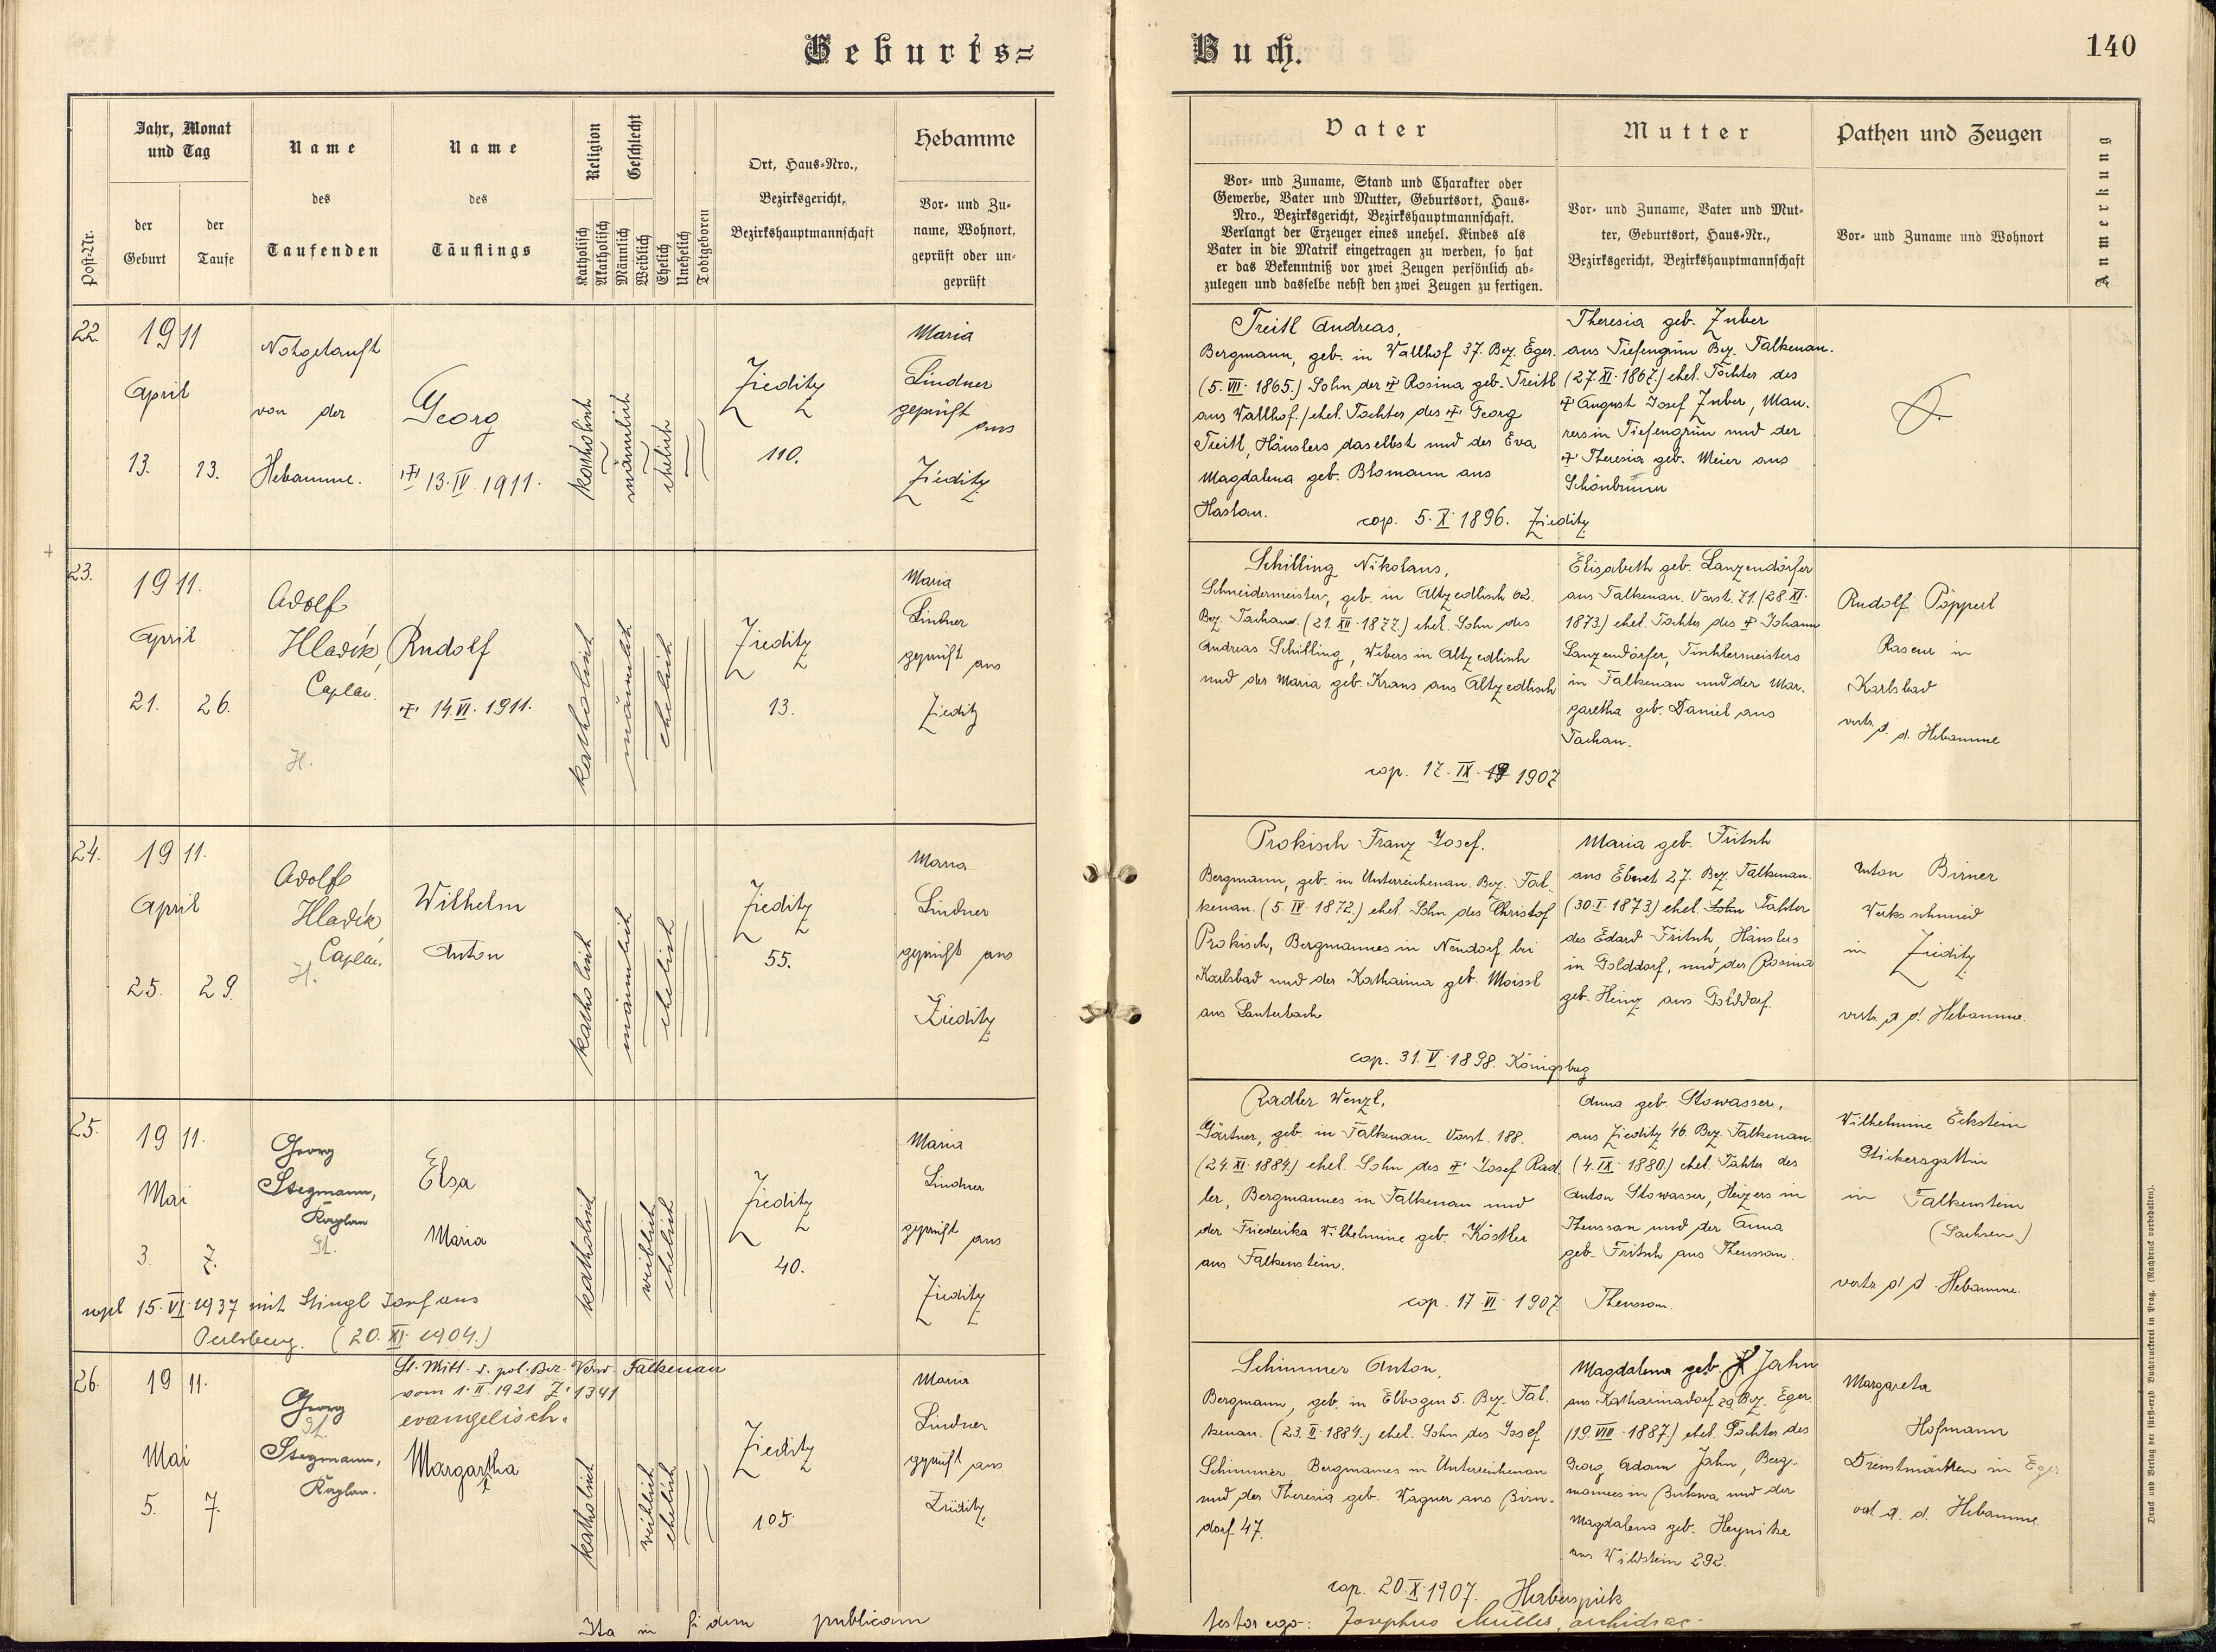 Geburts=
Buch.
140
Post-Nr.
Jahr, Monat
und Tag
der
Geburt
der
Taufe
Name
des
Taufenden
Name
des
Täuflings
Religion
Katholisch
Akatholisch
Geschlecht
Männlich
Weiblich
Ehelich
Unehelich
Todtgeboren
Ort, Haus-Nro.,
Bezirksgericht,
Bezirkshauptmannschaft
Hebamme
Vor- und Zu-
name, Wohnort,
geprüft oder un-
geprüft
Vater
Vor- und Zuname, Stand und Charakter oder
Gewerbe, Vater und Mutter, Geburtsort, Haus-
Nro., Bezirksgericht, Bezirkshauptmannschaft.
Verlangt der Erzeuger eines unehel. Kindes als
Vater in die Matrik eingetragen zu werden, so hat
er das Bekenntniß vor zwei Zeugen persönlich ab-
zulegen und dasselbe nebst den zwei Zeugen zu fertigen.
Mutter
Vor- und Zuname, Vater und Mut-
ter, Geburtsort, Haus-Nr.,
Bezirksgericht, Bezirkshauptmannschaft
Pathen und Zeugen
Vor- und Zuname und Wohnort
Anmerkung
22.
1911
April
13. 13.
Notgetauft
von der
Hebamme.
Georg
✝ 13. IV. 1911.
katholisch
männlich
ehelich
Zieditz
110.
Maria
Lindner
geprüft
aus
Zieditz
Treitl Andreas,
Bergmann, geb. in Wallhof 37. Bez. Eger.
(5. VII. 1865.) Sohn der ✝ Rosina geb. Treitl
aus Wallhof. /ehel. Tochter des ✝ Georg
Treitl, Häuslers daselbst und der Eva
Magdalena geb. Blomann aus
Haslau.
cop. 5. X. 1896. Zieditz
Theresia geb. Zuber
aus Tiefengrün Bez. Falkenau.
(27. XI. 1867.) ehel. Tochter des
✝ August Josef Zuber, Mau-
rers in Tiefengrün und der
✝ Theresia geb. Meier aus
Schönbrunn
23.
1911.
April
21. 26.
Adolf
Hladík,
Caplan.
H.
Rudolf
✝ 14. VI. 1911.
katholisch
männlich
ehelich
Zieditz
13.
Maria
Lindner
geprüft aus
Zieditz
Schilling Nikolaus,
Schneidermeister, geb. in Altzedlisch 62.
Bez. Tachau. (21. XII. 1877.) ehel. Sohn des
Andreas Schilling, Webers in Altzedlisch
und der Maria geb. Kraus aus Altzedlisch
cop. 17. IX. 1907
Elisabeth geb. Lanzendörfer
aus Falkenau. Vorst. 71. (28. XI.
1873.) ehel. Tochter des ✝ Johann
Lanzendörfer, Tischlermeisters
in Falkenau und der Mar-
garetha geb. Daniel aus
Tachau.
Rudolf Pöpperl
Raseur in
Karlsbad
vertr. d. d. Hebamme
24.
1911.
April
25. 29.
Adolf
Hladík
Caplan.
H.
Wilhelm
Anton
katholisch
männlich
ehelich
Zieditz
55.
Maria
Lindner
geprüft aus
Zieditz
Prokisch Franz Josef.
Bergmann, geb. in Unterreichenau. Bez. Fal-
kenau. (5. IV. 1872.) ehel. Sohn des Christof
Prokisch, Bergmannes in Neudorf bei
Karlsbad und der Katharina geb. Moissl
aus Lauterbach
cop. 31. V. 1898. Königsberg
Maria geb. Fritsch
aus Ebmet 27. Bez. Falkenau.
(30. I. 1873.) ehel. Sohn Tochter
des Edard Fritsch, Häuslers
in Golddorf, und der Rosina
geb. Heinz aus Golddorf.
Anton Birner
Werksschmied
in Zieditz
vertr. d. d. Hebamme.
25.
1911.
Mai
3. 7.
Georg
Stegmann,
Kaplan
St.
Elsa
Maria
katholisch
weiblich
ehelich
Zieditz
40.
Maria
Lindner
geprüft aus
Zieditz
copl 15. VI. 1937 mit Stingl Josef aus
Perlsberg. (20. XI. 1904.)
Radler Wenzl,
Gärtner, geb. in Falkenau. Vorst. 188.
(24. XI. 1884.) ehel. Sohn des ✝ Josef Rad
ler, Bergmannes in Falkenau und
der Friederika Wilhelmine geb. Köstler
aus Falkenstein.
cop. 17. VI. 1907. Theussau.
Anna geb. Stowasser,
aus Zieditz 46. Bez. Falkenau.
(4. IX. 1880.) ehel. Tochter des
Anton Stowasser, Heizers in
Theussau und der Anna
geb. Fritsch aus Theussau.
Wilhelmine Eckstein
Stickersgattin
in Falkenstein
(Sachsen.)
vertr. d. d. Hebamme.
26.
1911.
Mai
5. 7.
Georg
St.
Stegmann,
Kaplan.
Lt. Mitt. d. pol. Bez. Verw. Falkenau
vom 1. II. 1921 Z. 1341
evangelisch.
Margartha
katholisch
weiblich
ehelich
Zieditz
105.
Maria
Lindner
geprüft aus
Zieditz
Schimmer Anton,
Bergmann, geb. in Elbogen 5. Bez. Fal-
kenau. (23. II. 1884.) ehel. Sohn des Josef
Schimmer, Bergmannes in Unterreichenau
und der Theresia geb. Wagner aus Birn-
dorf 47.
cop. 20. X. 1907. Haberspirk
Magdalena geb. Jahn
aus Katharinadorf 29. Bez. Eger.
(19. VIII. 1887.) ehel. Tochter des
Georg Adam Jahn, Berg-
mannes in Bukwa und der
Magdalena geb. Heynitze
aus Wildstein 292.
Margareta
Hofmann
Dienstmädchen in Eger
vert. d. d. Hebamme.
Ita in fidem publicam
testor ego: Josephus Müller, archidiac.
Druck und Verlag der fürst-erzb. Buchdruckerei in Prag. (Nachdruck vorbehalten).